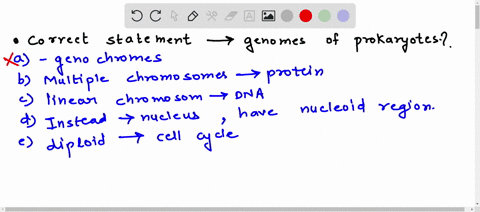 • Correct statement → genomes of prokaryotes?.
xa) - geno chromes
b) Multiple chromosomes → protein
c) linear chromosom → DNA
d) Instead → nucleus , have nucleoid region.
e) diploid → cell cycle